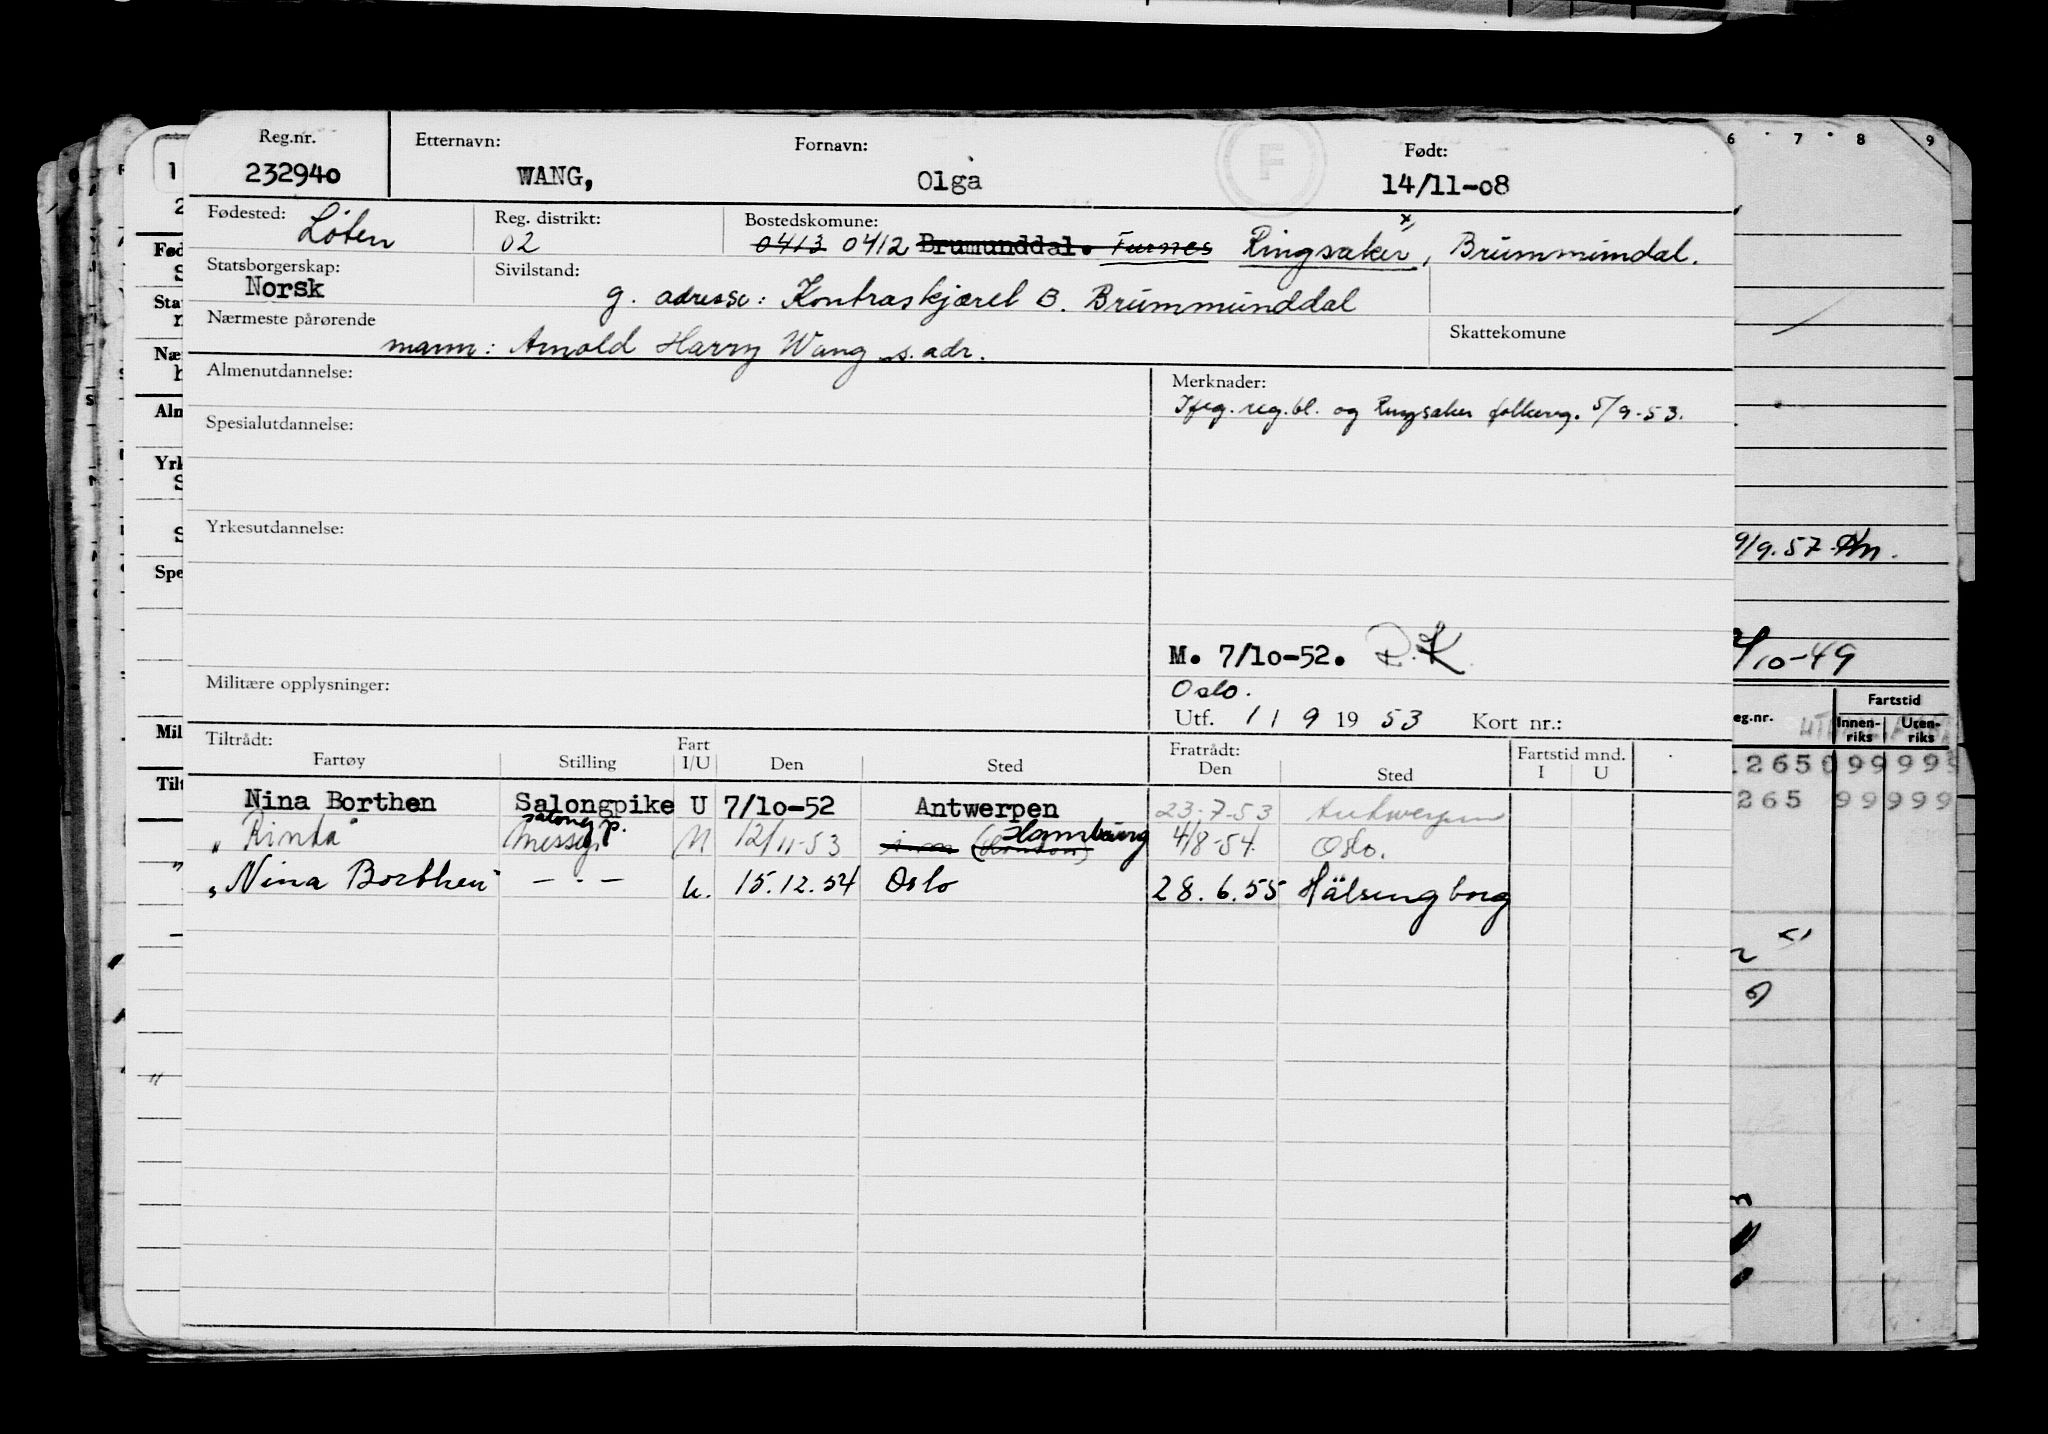 Reg.nr. Etternavn: Fornavn: F Født:
232940 WANG, Olga 14/11-08
Fødested: Løten Reg. distrikt: 02 Bostedskommune: 0413 0412 Brumunddal. Furnes Ringsaker x, Brummundal.
Statsborgerskap: Norsk Sivilstand: g. adresse: Kontraskjæret B. Brummunddal
Nærmeste pårørende mann: Arnold Harry Wang s. adr. Skattekomune
Almenutdannelse: Merknader:
reg.bl. og Ringsaker folkereg. 5/9-53.
Spesialutdannelse:
Yrkesutdannelse:
M. 7/10-52. R.K.
Militære opplysninger: Oslo.
Utf. 1 / 9 19 53 Kort nr.:
Tiltrådt: Fratrådt:
Fartøy Stilling Fart I/U Den Sted Den Sted Fartstid mnd. I U
Nina Borthen Salongpike U 7/10-52 Antwerpen 23.7-53 Antwerpen
"Rinda" salong p. 12/11-53 (London) Hamburg 4/8-54 Oslo.
"Nina Borthen" — · — u. 15.12.54 Oslo 28.6.55 Hälsingborg
6 7 8 9
9/9.57
/10-49
eg.nr. Fartstid
Innen-riks Uten-riks
265 99 999
265 99 999